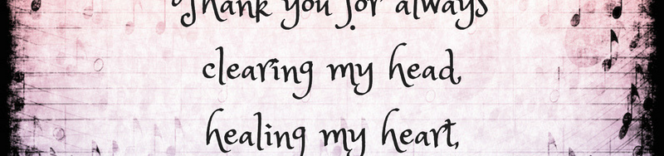 Thank you for always
clearing my head,
healing my heart,